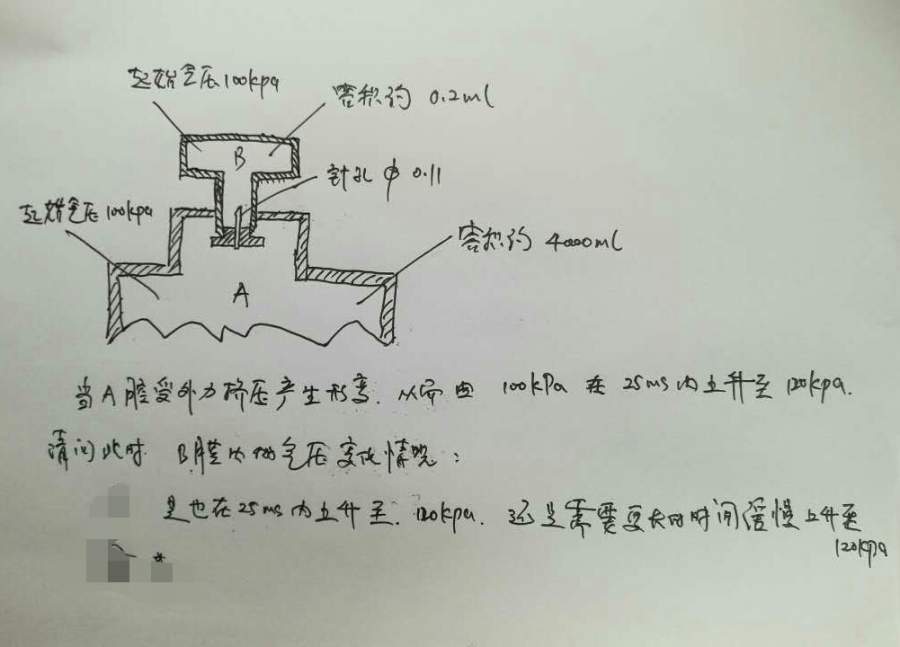 起始气压100kpa
容积约 0.2ml
B
针孔 φ 0.11
起始气压100kpa
容积约 4000ml
A
当A腔受外力挤压产生形变.从而由 100kPa 在 25ms 内上升至 120kpa.
请问此时. B腔内的气压变化情况:
是也在25ms内上升至.120kpa. 还是需要更长的时间缓慢上升至
120kpa